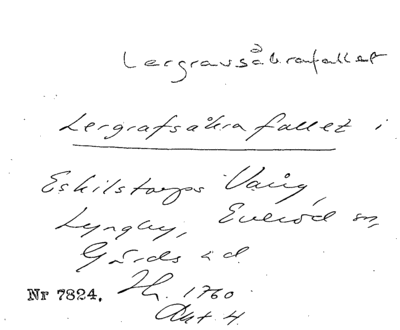 Lergravsåkrafallet
Lergrafsåkra fallet i
Eskilstorps Vång,
Lyngby, Everöd sn,
Gärds hd.
Nr 7824. Hr. 1760
Akt 4.